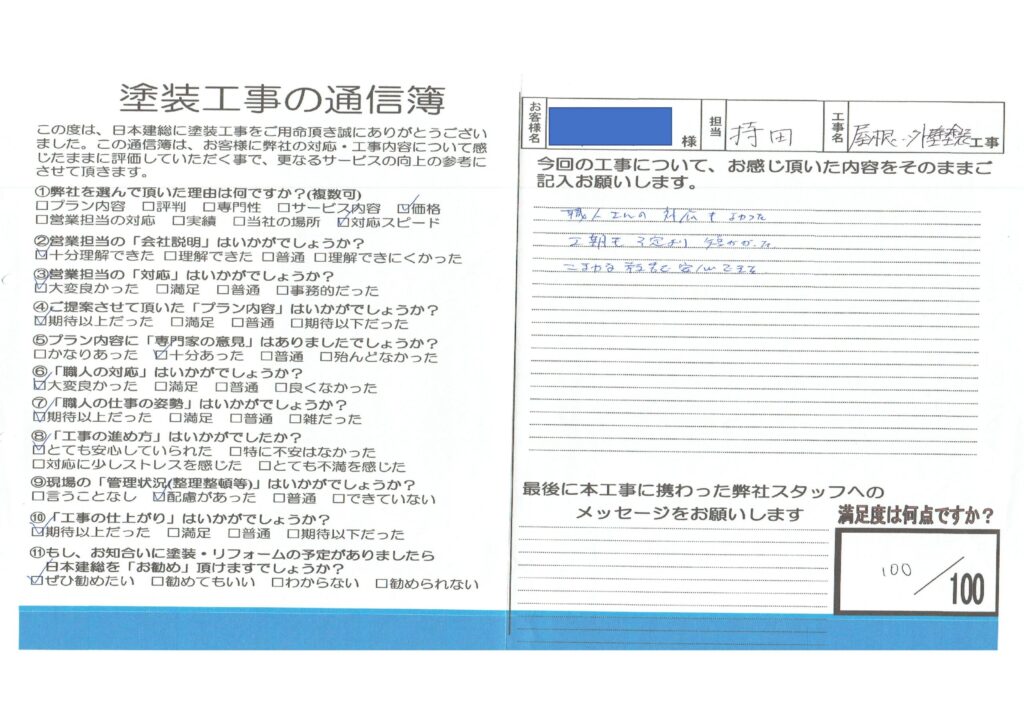 塗装工事の通信簿
この度は、日本建総に塗装工事をご用命頂き誠にありがとうござい
ました。この通信簿は、お客様に弊社の対応・工事内容について感
じたままに評価していただく事で、更なるサービスの向上の参考に
させて頂きます。
①弊社を選んで頂いた理由は何ですか?(複数可)
□プラン内容 □評判 □専門性 □サービス内容 ☑価格
□営業担当の対応 □実績 □当社の場所 ☑対応スピード
②営業担当の「会社説明」はいかがでしょうか?
☑十分理解できた □理解できた □普通 □理解できにくかった
③営業担当の「対応」はいかがでしょうか?
☑大変良かった □満足 □普通 □事務的だった
④ご提案させて頂いた「プラン内容」はいかがでしょうか?
☑期待以上だった □満足 □普通 □期待以下だった
⑤プラン内容に「専門家の意見」はありましたでしょうか?
□かなりあった ☑十分あった □普通 □殆んどなかった
⑥「職人の対応」はいかがでしょうか?
☑大変良かった □満足 □普通 □良くなかった
⑦「職人の仕事の姿勢」はいかがでしょうか?
☑期待以上だった □満足 □普通 □雑だった
⑧「工事の進め方」はいかがでしたか?
☑とても安心していられた □特に不安はなかった
□対応に少しストレスを感じた □とても不満を感じた
⑨現場の「管理状況(整理整頓等)」はいかがでしょうか?
□言うことなし ☑配慮があった □普通 □できていない
⑩「工事の仕上がり」はいかがでしょうか?
☑期待以上だった □満足 □普通 □期待以下だった
⑪もし、お知合いに塗装・リフォームの予定がありましたら
日本建総を「お勧め」頂けますでしょうか?
☑ぜひ勧めたい □勧めてもいい □わからない □勧められない
お客様名 様 担当 持田 工事名 屋根・外壁塗装工事
今回の工事について、お感じ頂いた内容をそのままご
記入お願いします。
職人さんの対応もよかった
工期も予定より短かかった
安心できる
最後に本工事に携わった弊社スタッフへの
メッセージをお願いします
満足度は何点ですか?
100/100